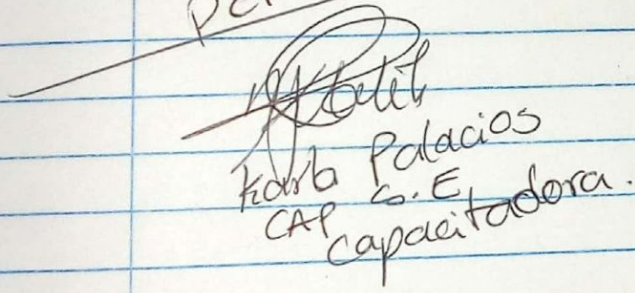 Karla Palacios
CAP G.E
Capacitadora.